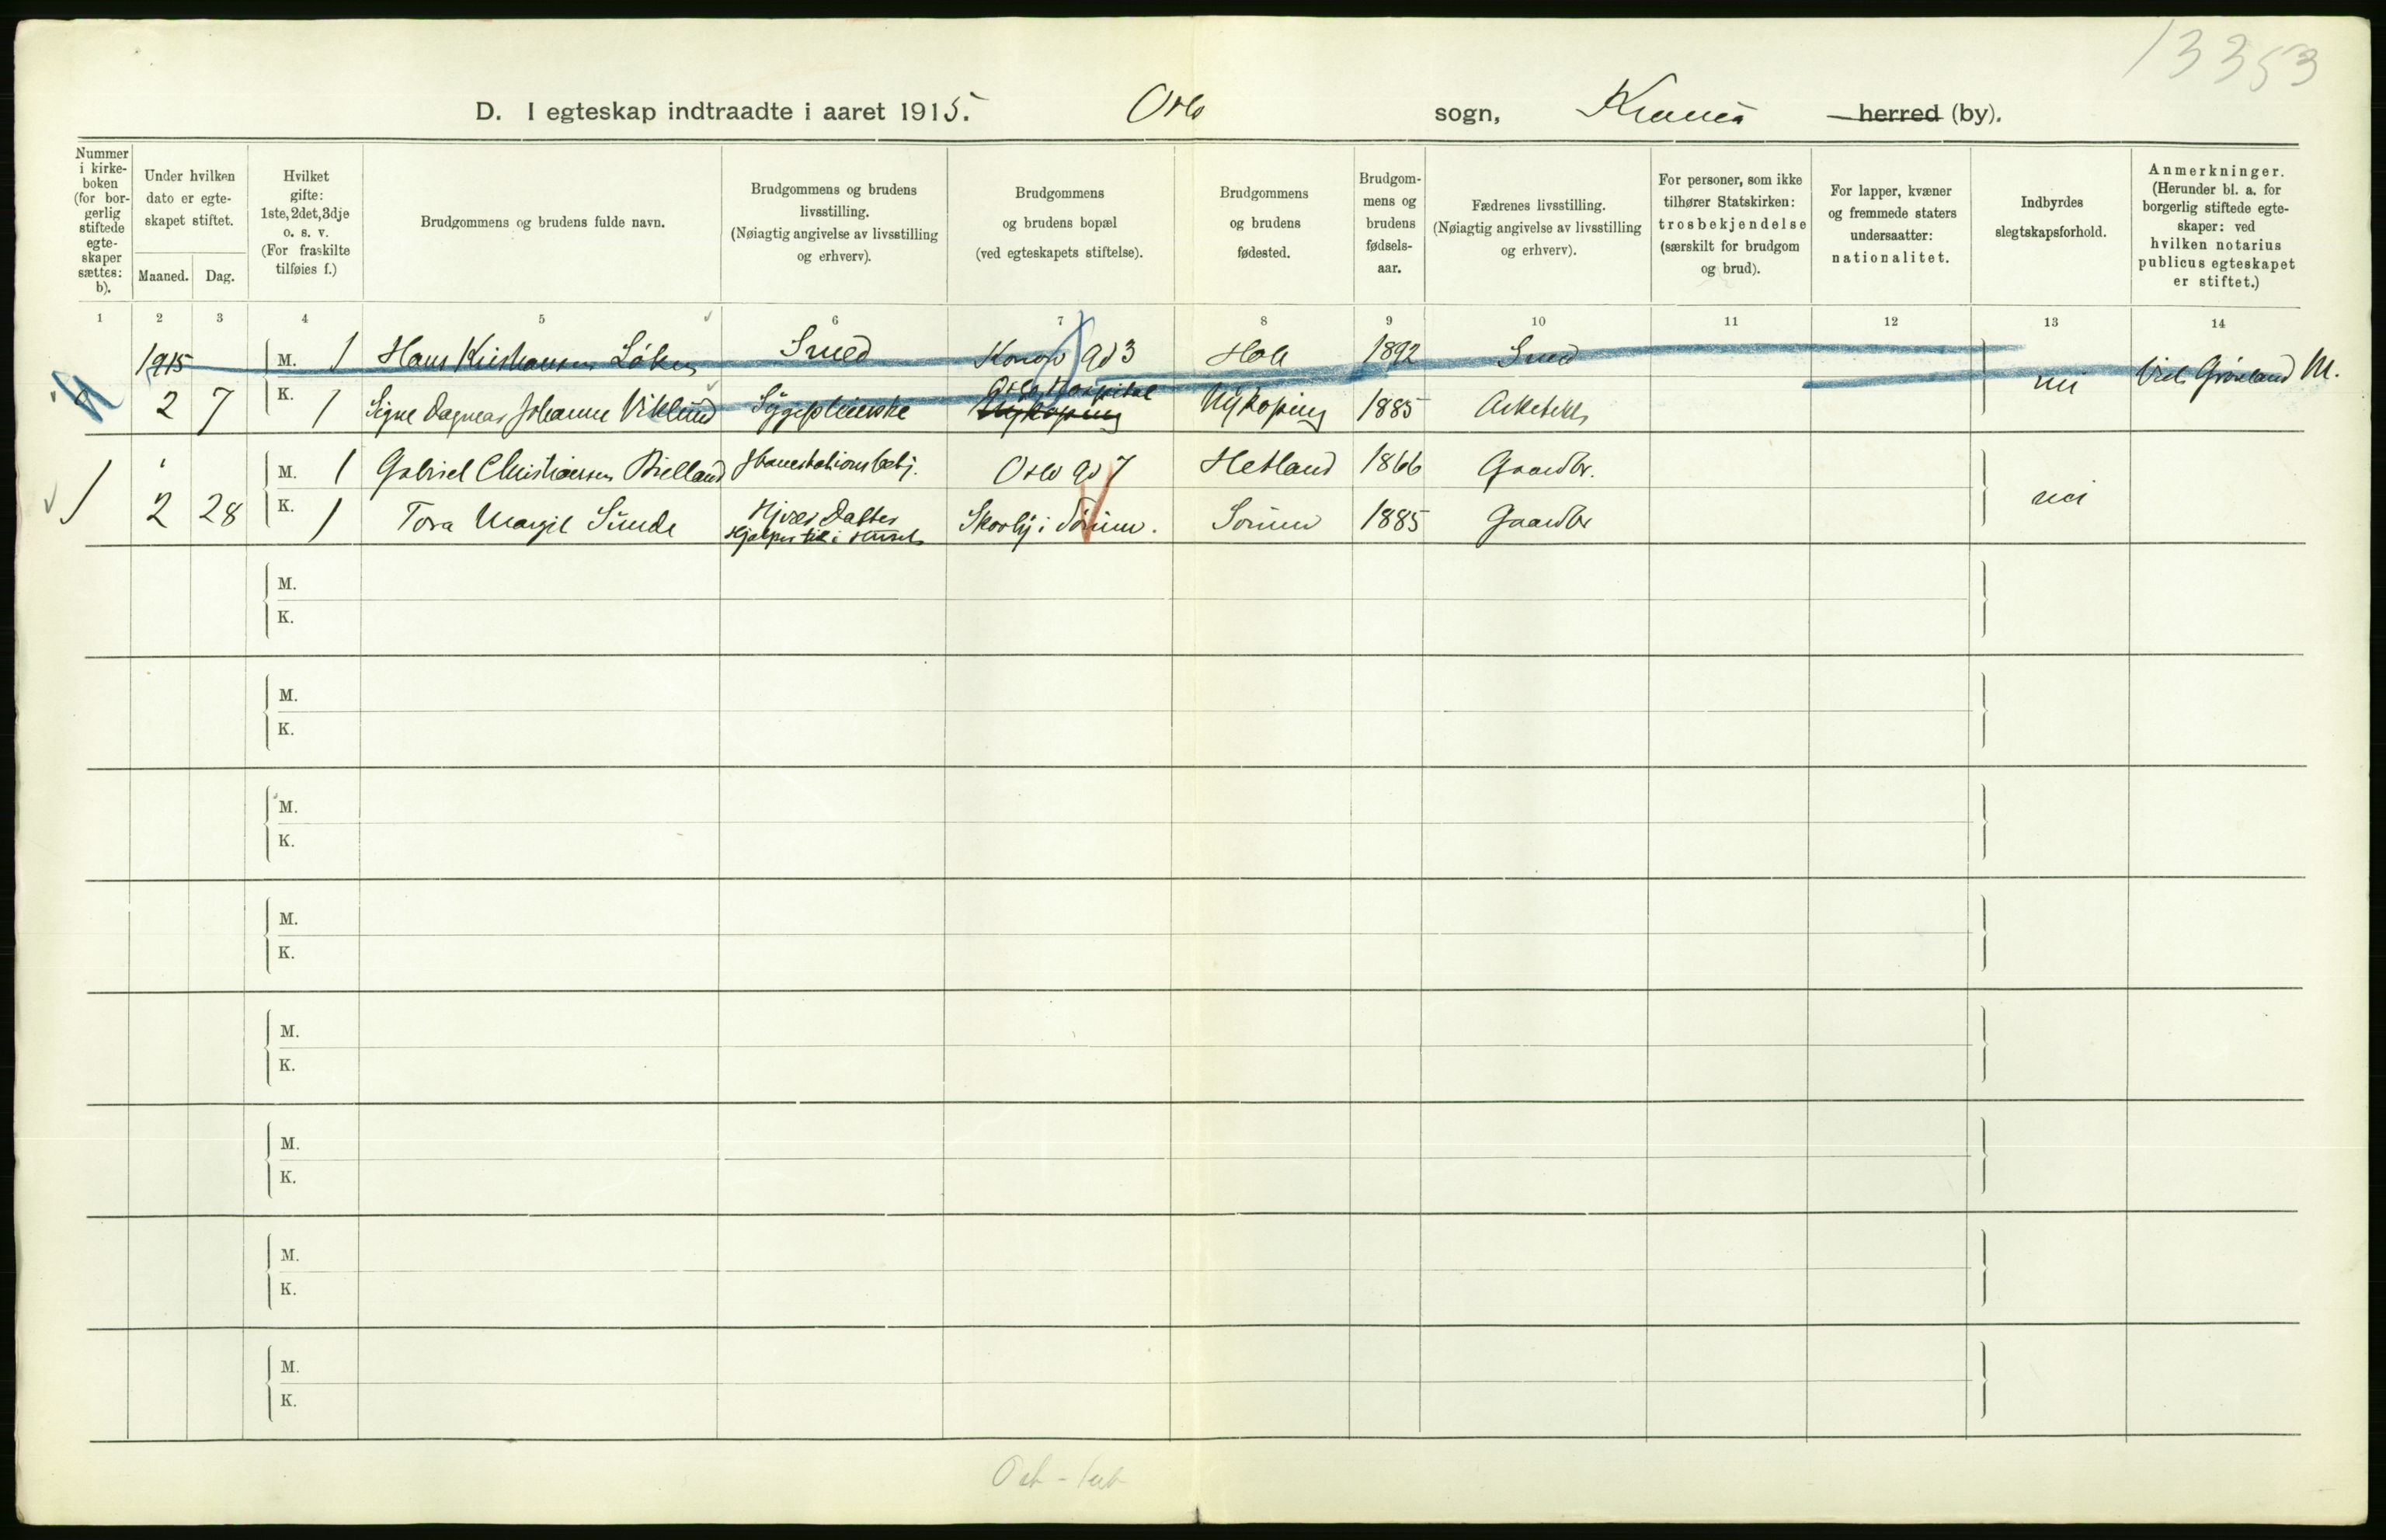 13353
D. I egteskap indtraadte i aaret 1915. Oslo sogn, herred (by).
Nummer i kirke-boken (for bor-gerlig stiftede egte-skaper sættes: b).
Under hvilken dato er egte-skapet stiftet.
Maaned. Dag.
Hvilket gifte: 1ste, 2det, 3dje o. s. v. (For fraskilte tilføies f.)
Brudgommens og brudens fulde navn.
Brudgommens og brudens livsstilling. (Nøiagtig angivelse av livsstilling og erhverv).
Brudgommens og brudens bopæl (ved egteskapets stiftelse).
Brudgommens og brudens fødested.
Brudgom-mens og brudens fødsels-aar.
Fædrenes livsstilling. (Nøiagtig angivelse av livsstilling og erhverv).
For personer, som ikke tilhører Statskirken: trosbekjendelse (særskilt for brudgom og brud).
For lapper, kvæner og fremmede staters undersaatter: nationalitet.
Indbyrdes slegtskapsforhold.
Anmerkninger. (Herunder bl. a. for borgerlig stiftede egte-skaper: ved hvilken notarius publicus egteskapet er stiftet.)
1 2 3 4 5 6 7 8 9 10 11 12 13 14
1915 M. 1 Hans Kristiansen Løken Smed Konow gd 3 Hole 1892 Smed
2 7 K. 1 Signe Dagmar Johanne Viklund Sygepleierske Oslo Hospital Nykøping Nykoping 1885 Arkitekt nei Viet i Grønland M.
M. 1 Gabriel Christiansen Bielland Banestationsbetj. Oslo gd 7 Hetland 1866 Gaardbr.
1 2 28 K. 1 Tora Margit Sunde Datter Hjælper til i Huset Skovby i Sørum. Sorum 1885 Gaardbr nei
M.
K.
M.
K.
M.
K.
M.
K.
M.
K.
M.
K.
M.
K.
M.
K.